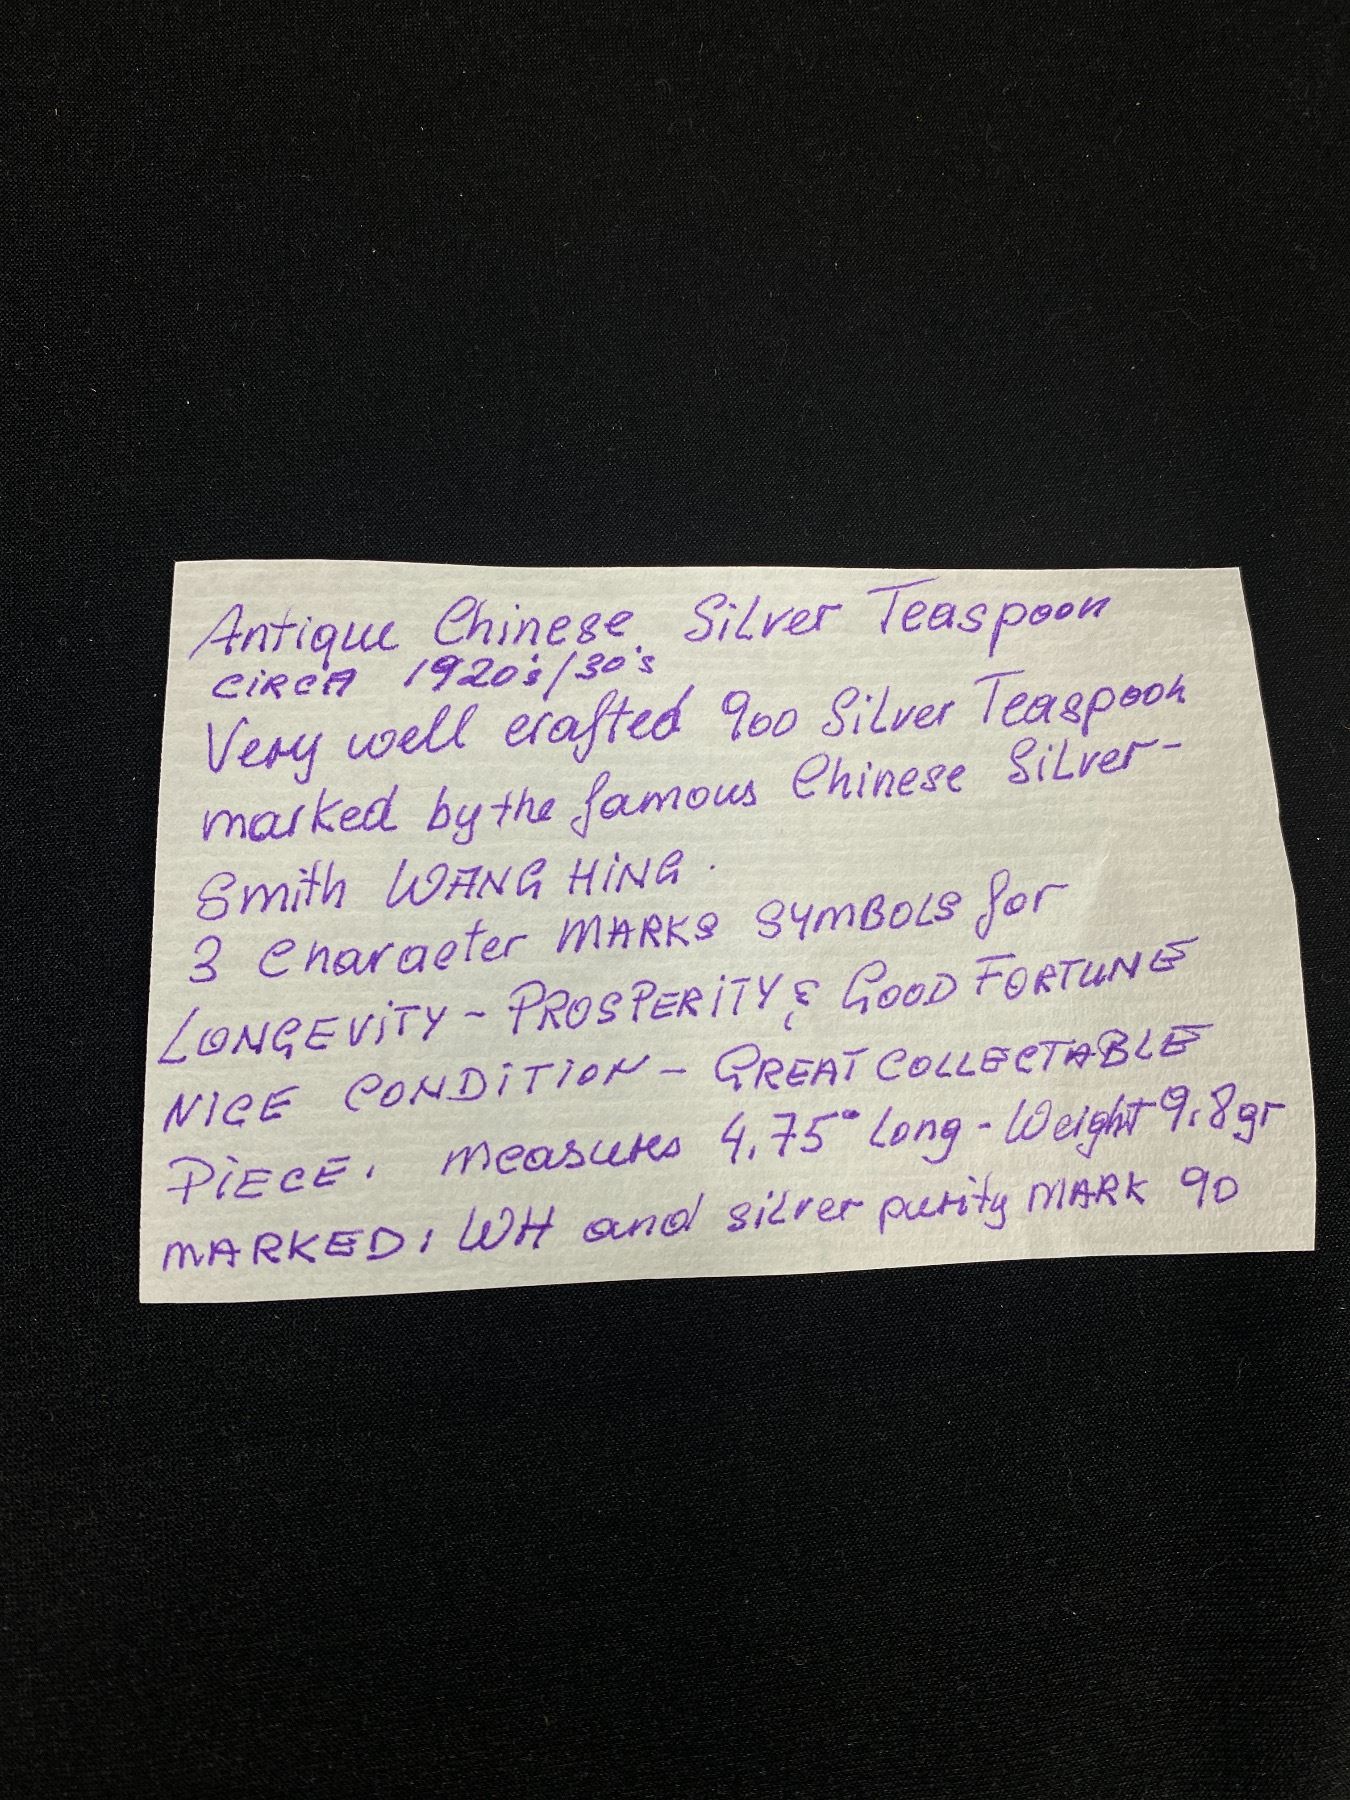 Antique Chinese Silver Teaspoon
CIRCA 1920's/30's
Very well crafted 900 Silver Teaspoon
marked by the famous Chinese Silver-
Smith WANG HING.
3 Character MARKS SYMBOLS for
LONGEVITY - PROSPERITY & GOOD FORTUNE
NICE CONDITION - GREAT COLLECTABLE
PIECE. measures 4.75" Long - Weight 9.8gr
MARKED: WH and silver purity MARK 90